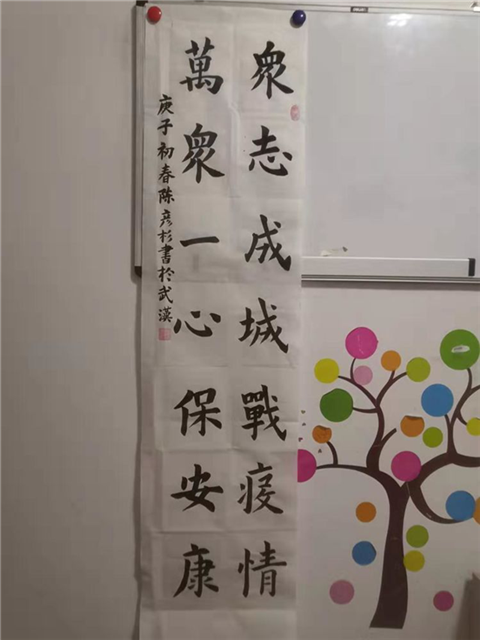 眾志成城戰疫情
萬眾一心保安康
庚子初春陈彦杉書於武漢